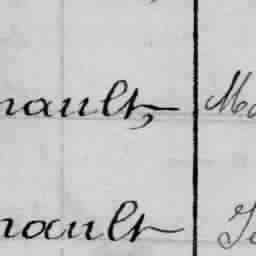 nault, Ma
nault Je